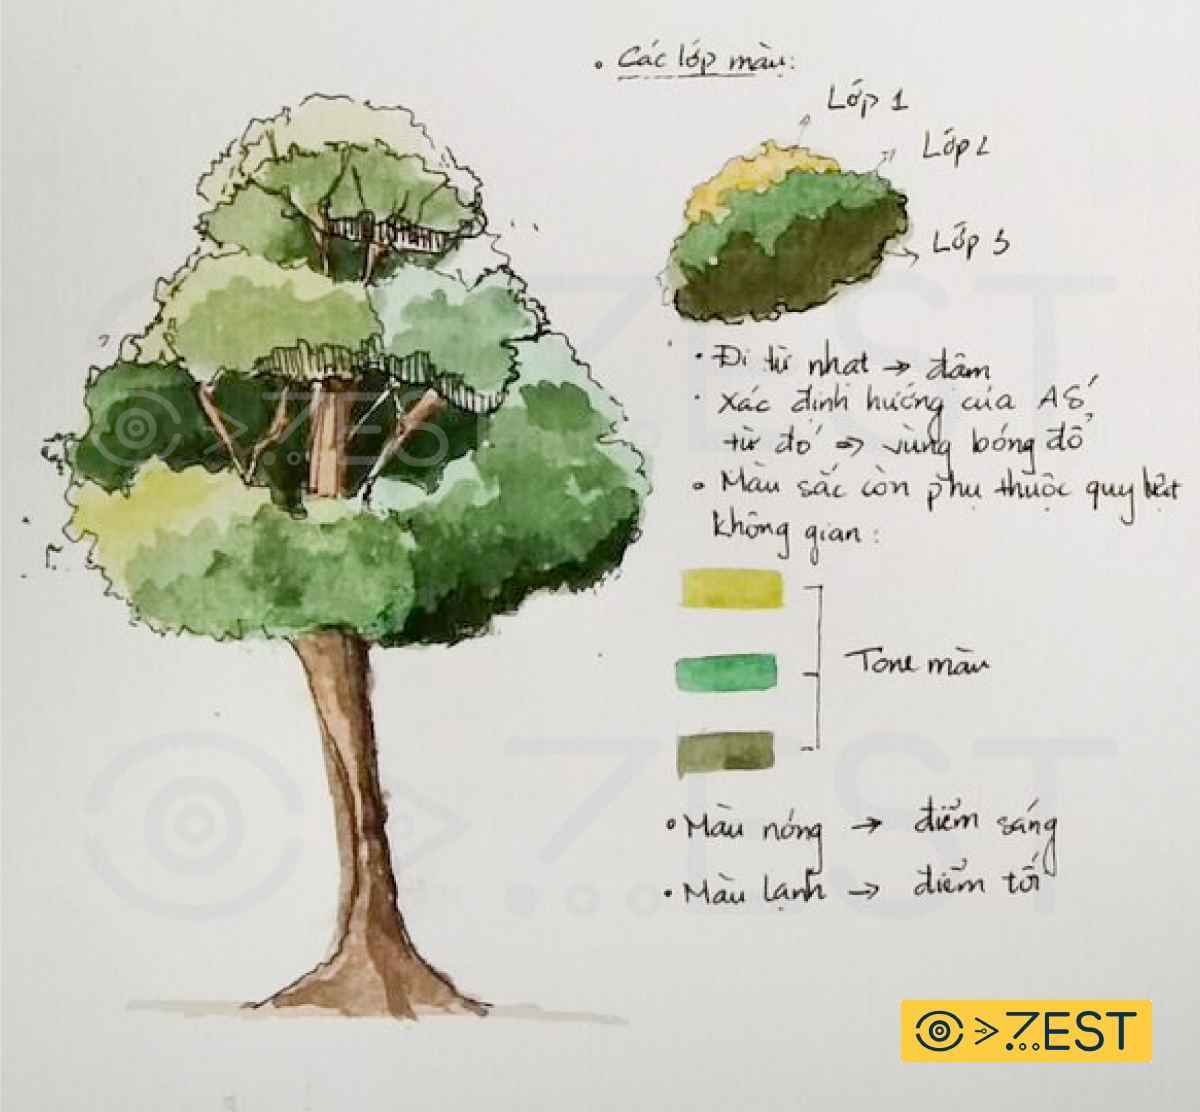 • Các lớp màu:
Lớp 1
Lớp 2
Lớp 3
• Đi từ nhạt → đậm
• Xác định hướng của AS'
từ đó => vùng bóng đổ
• Màu sắc còn phụ thuộc quy luật
không gian :
Tone màu
• Màu nóng → điểm sáng
• Màu lạnh → điểm tối
ZEST
ZEST
ZEST
ZEST